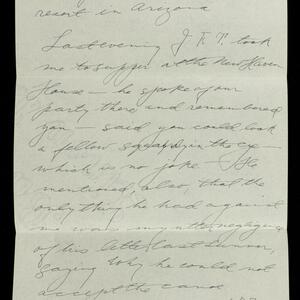 resort in Arizona
Last evening J. F. T. took
me to supper at the New Haven
House — he spoke of our
party there and remembered
you — said you could look
a fellow squarely in the eye —
which is no joke — He
mentioned, also, that the
only thing he had against
me was my utter negligence
of his letter last summer,
saying why he could not
accept the canoe